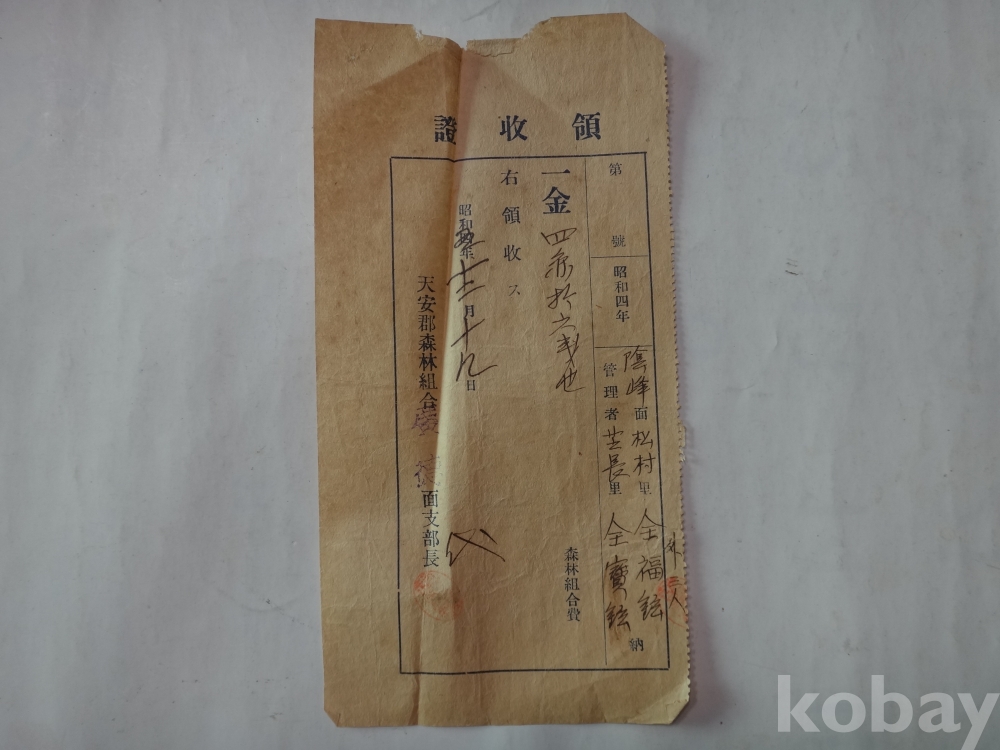 領收證
第 號
昭和四年
陰峰面松村里 全福鉉
外三人
管理者 芝長里 全寶鉉 納
一金 四円拾六戔也
森林組合費
右領收ス
昭和 年十二月十九日
天安郡森林組合廣德面支部長
kobay